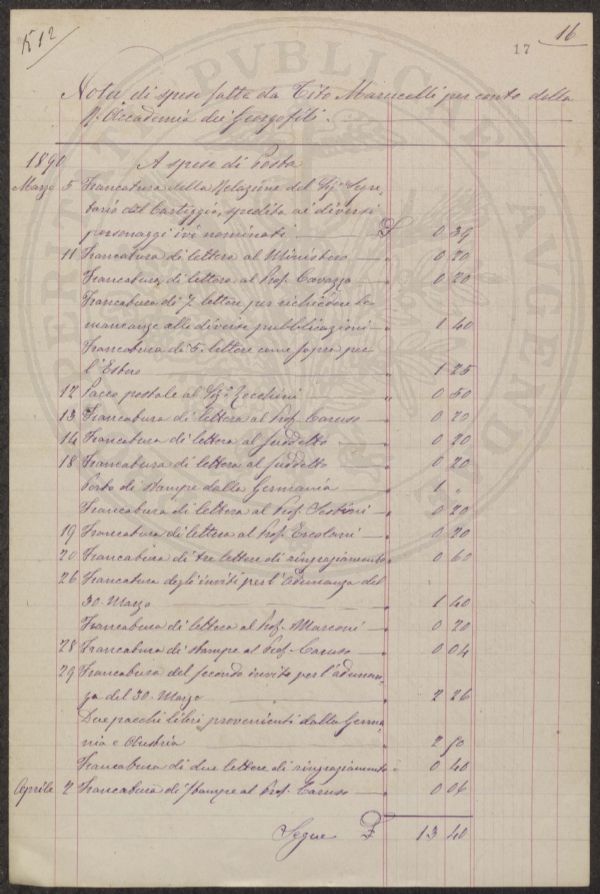 512
17
16
Nota di spese fatte da Tito Marucelli per conto della
R. Accademia dei Georgofili.
1890 A spese di Posta
Marzo 5 Francatura della Relazione del Sig. Segre,
tario sul Carteggio, spedita ai diversi
personaggi ivi nominati £ 0 39
11 Francatura di lettera al Ministero " 0 20
Francatura di lettera al Prof. Cavazza " 0 20
Francatura di 7 lettere per richiedere le
mancanze alle diverse pubblicazioni " 1 40
Francatura di 5 lettere come sopra per
l'Estero " 1 25
12 Pacco postale al Sig. Zecchini " 0 50
13 Francatura di lettera al Prof. Caruso " 0 20
14 Francatura di lettera al suddetto " 0 20
18 Francatura di lettera al suddetto " 0 20
Porto di stampe dalla Germania " 1 "
Francatura di lettera al Prof. " 0 20
19 Francatura di lettera al Prof. Ercolani " 0 20
20 Francatura di tre lettere di ringraziamento " 0 60
26 Francatura degli inviti per l'Adunanza del
30. Marzo " 1 40
Francatura di lettera al Prof. Marconi " 0 20
28 Francatura di stampe al Prof. Caruso " 0 04
29 Francatura del secondo invito per l'adunan,
za del 30. Marzo " 2 26
Due pacchi libri provenienti dalla Germa,
nia e Austria " 2 50
Francatura di due lettere di ringraziamento " 0 40
Aprile 2 Francatura di stampe al Prof. Caruso " 0 06
Segue £ 13 40